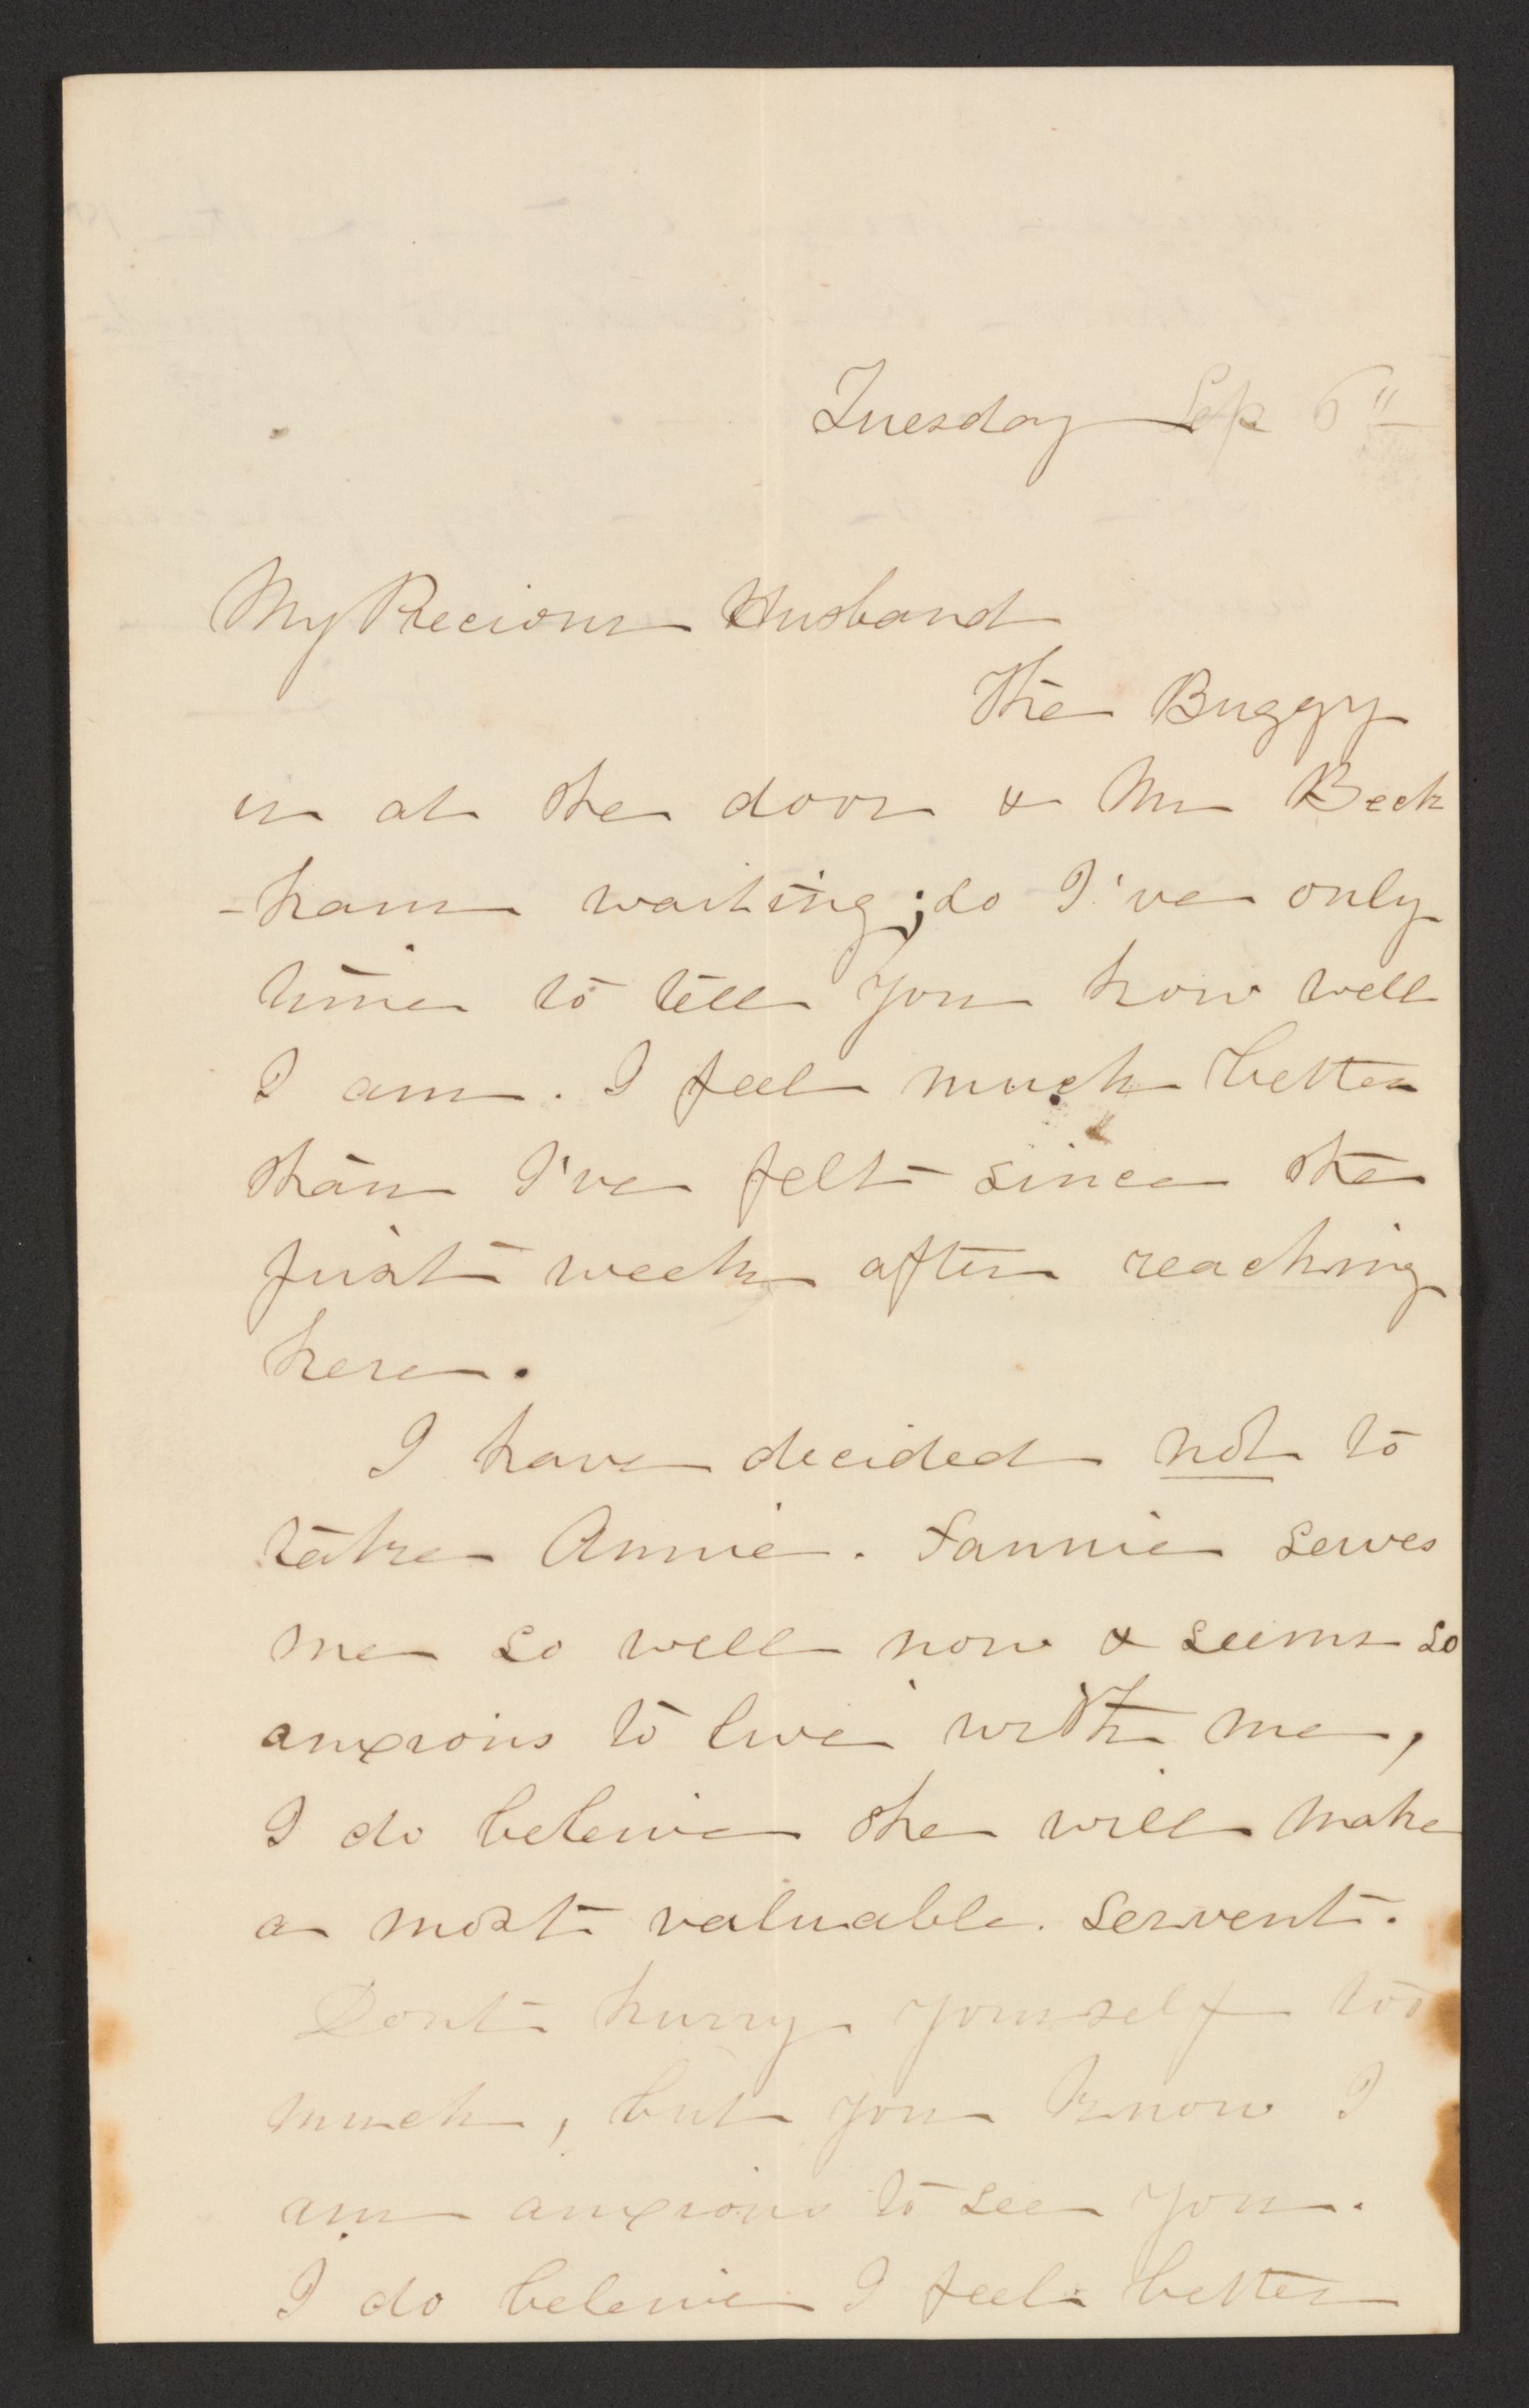 Tuesday Sep 6"
My Precious Husband
The Buggy
is at the door & Mr Beck
-ham waiting; so I've only
time to tell you how well
I am. I feel much better
than I've felt since the
first week after reaching
here.
I have decided not to
take Annie. Fannie serves
me so well now & seems so
anxious to live with me,
I do beleive she will make
a most valuable servent.
Dont hurry yourself too
much, but you know I
am anxious to see you.
I do beleive I feel better